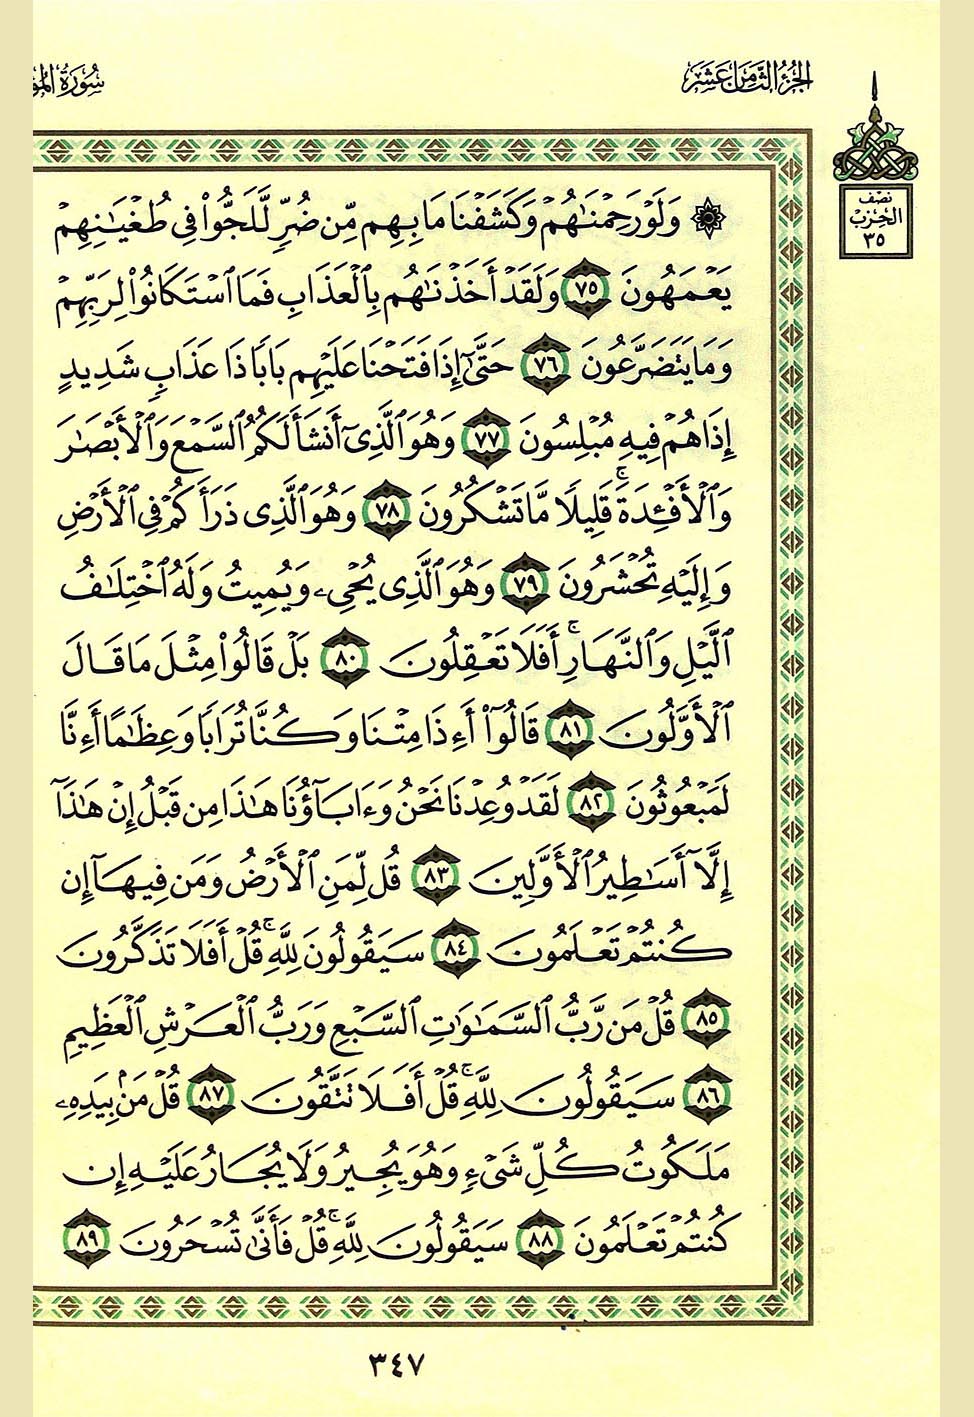 الجزء الثامن عشر
سورة المؤ
نصف
الحزب
٣٥
۞ وَلَوْ رَحِمْنَٰهُمْ وَكَشَفْنَا مَا بِهِم مِّن ضُرٍّ لَّلَجُّوا۟ فِى طُغْيَٰنِهِمْ
يَعْمَهُونَ ٧٥ وَلَقَدْ أَخَذْنَٰهُم بِٱلْعَذَابِ فَمَا ٱسْتَكَانُوا۟ لِرَبِّهِمْ
وَمَا يَتَضَرَّعُونَ ٧٦ حَتَّىٰٓ إِذَا فَتَحْنَا عَلَيْهِم بَابًا ذَا عَذَابٍ شَدِيدٍ
إِذَا هُمْ فِيهِ مُبْلِسُونَ ٧٧ وَهُوَ ٱلَّذِىٓ أَنشَأَ لَكُمُ ٱلسَّمْعَ وَٱلْأَبْصَٰرَ
وَٱلْأَفْـِٔدَةَ ۚ قَلِيلًا مَّا تَشْكُرُونَ ٧٨ وَهُوَ ٱلَّذِى ذَرَأَكُمْ فِى ٱلْأَرْضِ
وَإِلَيْهِ تُحْشَرُونَ ٧٩ وَهُوَ ٱلَّذِى يُحْىِۦ وَيُمِيتُ وَلَهُ ٱخْتِلَٰفُ
ٱلَّيْلِ وَٱلنَّهَارِ ۚ أَفَلَا تَعْقِلُونَ ٨٠ بَلْ قَالُوا۟ مِثْلَ مَا قَالَ
ٱلْأَوَّلُونَ ٨١ قَالُوٓا۟ أَءِذَا مِتْنَا وَكُنَّا تُرَابًا وَعِظَٰمًا أَءِنَّا
لَمَبْعُوثُونَ ٨٢ لَقَدْ وُعِدْنَا نَحْنُ وَءَابَآؤُنَا هَٰذَا مِن قَبْلُ إِنْ هَٰذَآ
إِلَّآ أَسَٰطِيرُ ٱلْأَوَّلِينَ ٨٣ قُل لِّمَنِ ٱلْأَرْضُ وَمَن فِيهَآ إِن
كُنتُمْ تَعْلَمُونَ ٨٤ سَيَقُولُونَ لِلَّهِ ۚ قُلْ أَفَلَا تَذَكَّرُونَ
٨٥ قُلْ مَن رَّبُّ ٱلسَّمَٰوَٰتِ ٱلسَّبْعِ وَرَبُّ ٱلْعَرْشِ ٱلْعَظِيمِ
٨٦ سَيَقُولُونَ لِلَّهِ ۚ قُلْ أَفَلَا تَتَّقُونَ ٨٧ قُلْ مَنۢ بِيَدِهِۦ
مَلَكُوتُ كُلِّ شَىْءٍ وَهُوَ يُجِيرُ وَلَا يُجَارُ عَلَيْهِ إِن
كُنتُمْ تَعْلَمُونَ ٨٨ سَيَقُولُونَ لِلَّهِ ۚ قُلْ فَأَنَّىٰ تُسْحَرُونَ ٨٩
٣٤٧